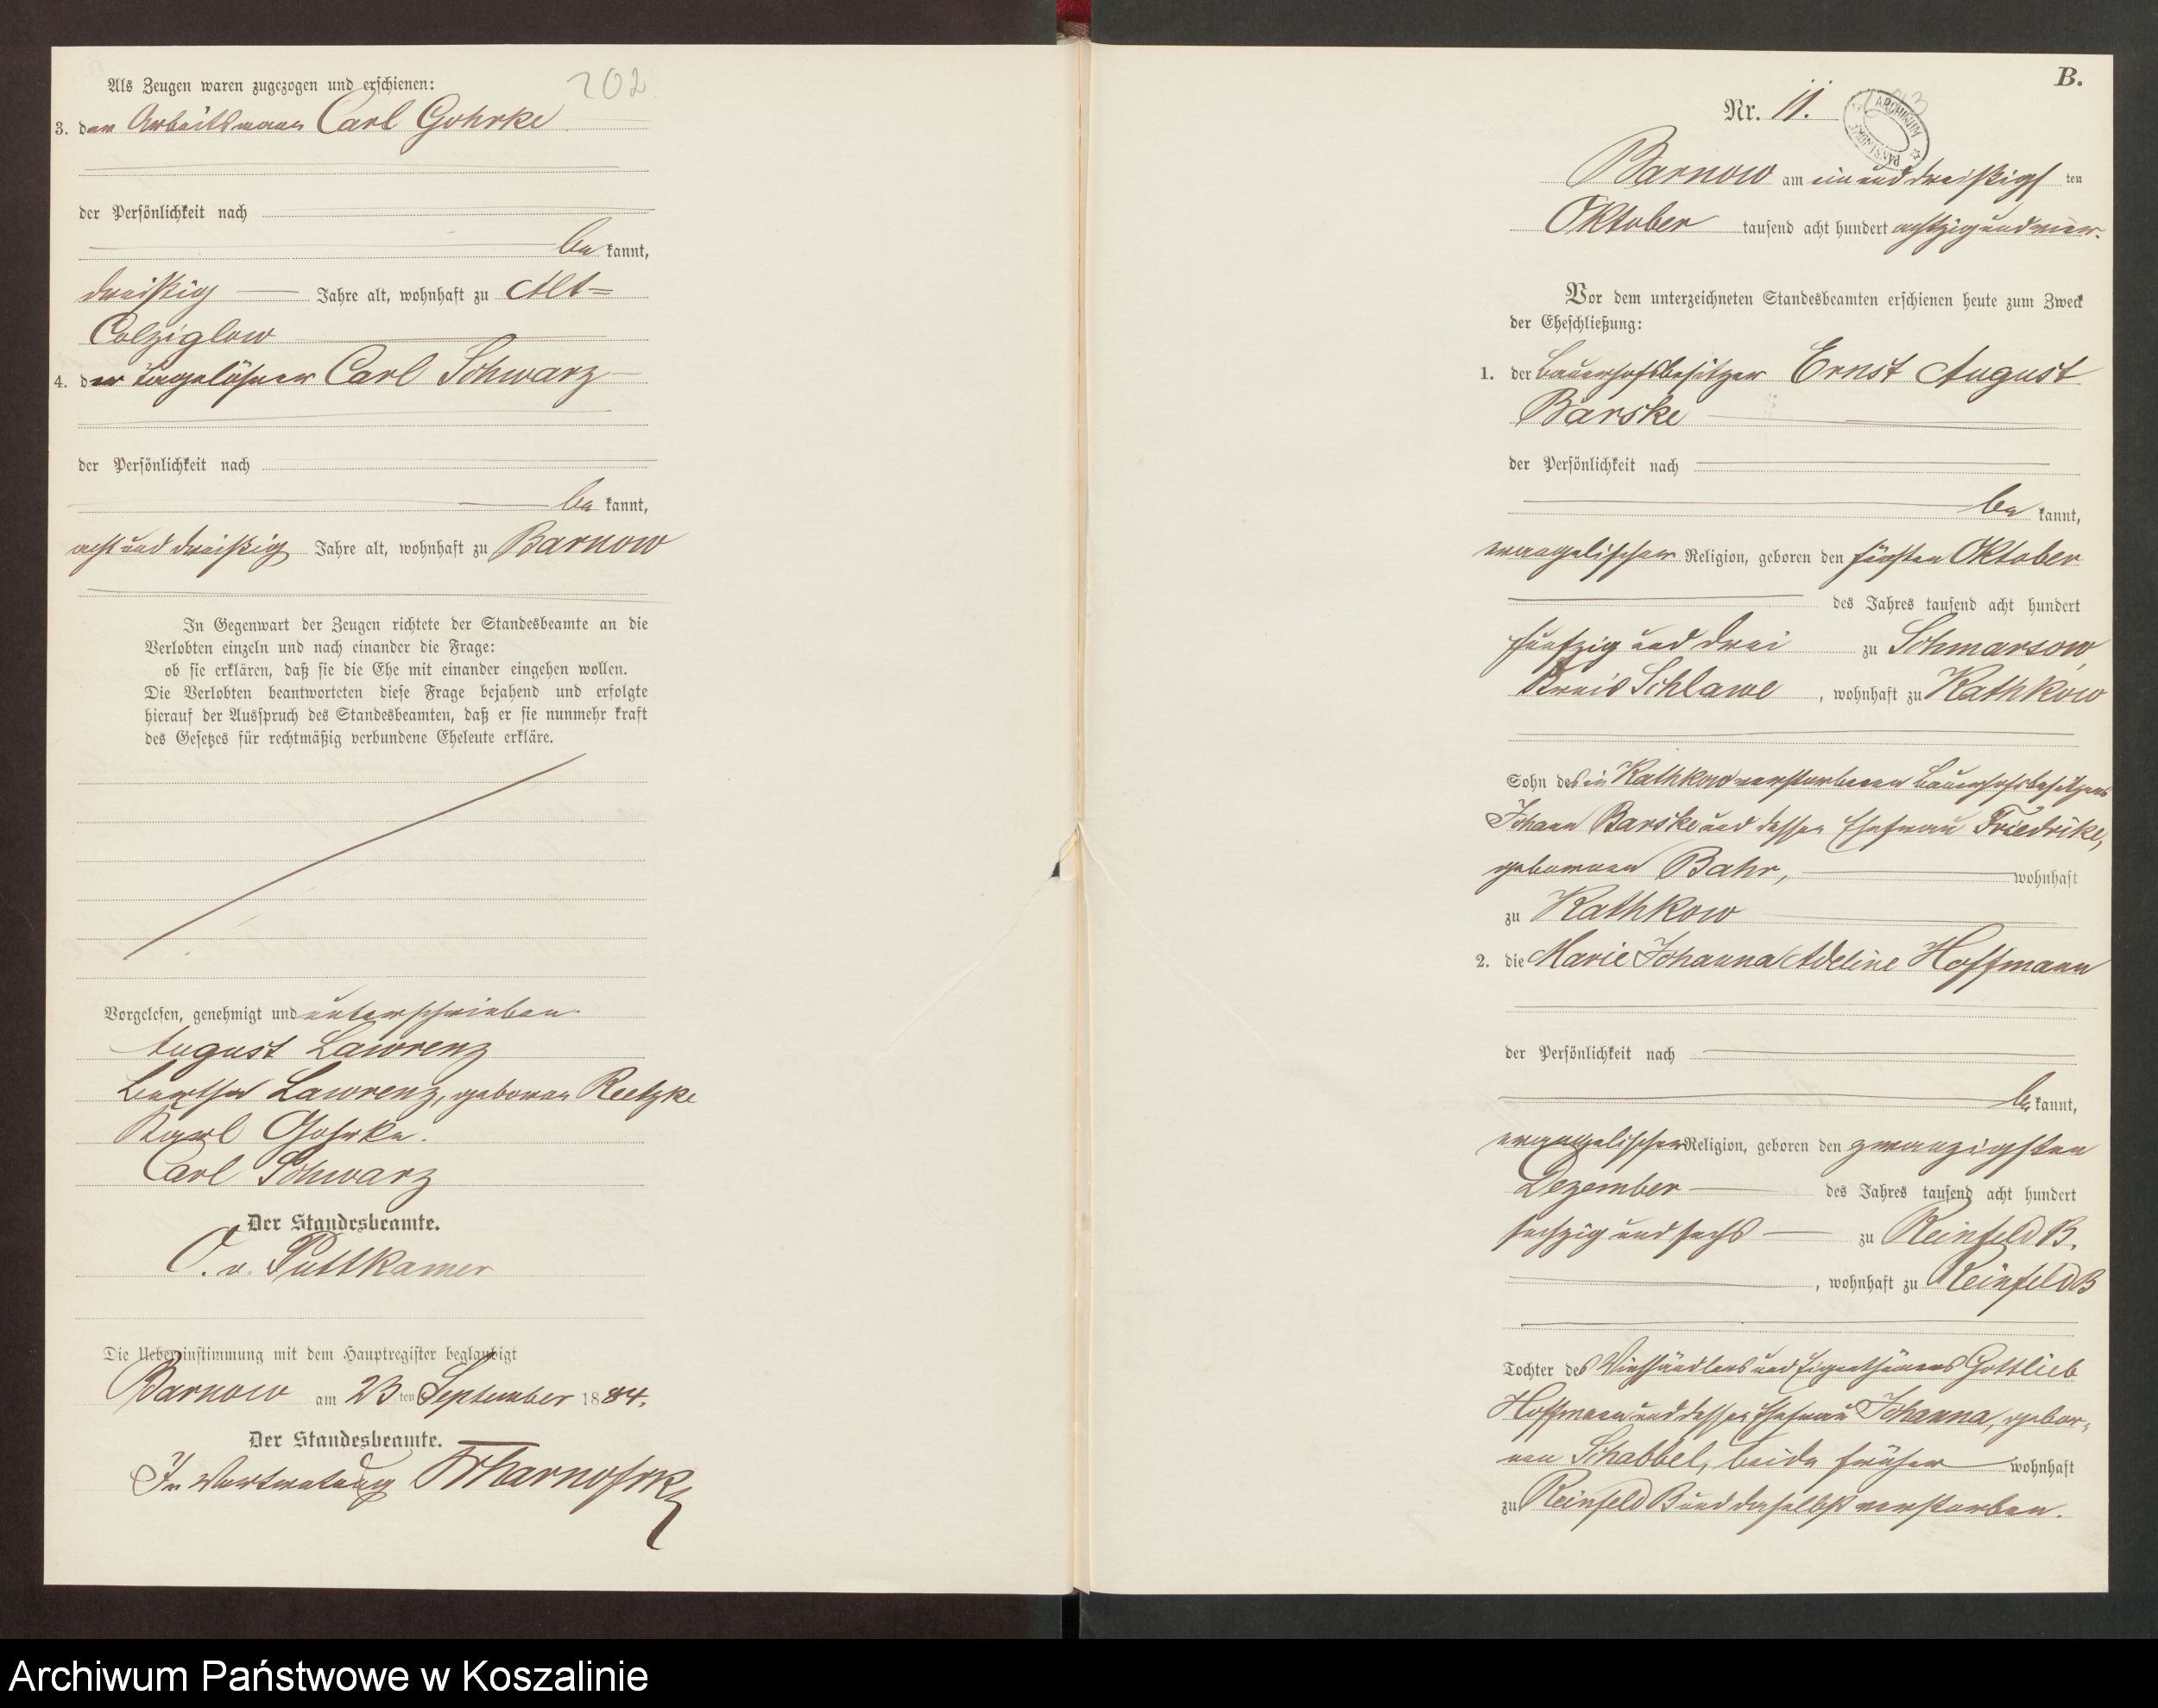 Als Zeugen waren zugezogen und erschienen:
202
3. der Arbeitsmann Carl Gohrke
der Persönlichkeit nach
be kannt,
dreißig Jahre alt, wohnhaft zu Alt=
Colziglow
4. der Tagelöhner Carl Schwarz
der Persönlichkeit nach
be kannt,
acht und dreißig Jahre alt, wohnhaft zu Barnow
In Gegenwart der Zeugen richtete der Standesbeamte an die
Verlobten einzeln und nach einander die Frage:
ob sie erklären, daß sie die Ehe mit einander eingehen wollen.
Die Verlobten beantworteten diese Frage bejahend und erfolgte
hierauf der Ausspruch des Standesbeamten, daß er sie nunmehr kraft
des Gesetzes für rechtmäßig verbundene Eheleute erkläre.
Vorgelesen, genehmigt und unterschrieben.
August Lawrenz
Bertha Lawrenz, geboren Reetzke
Karl Gohrke.
Carl Schwarz
Der Standesbeamte.
O. v. Puttkamer
Die Uebereinstimmung mit dem Hauptregister beglaubigt
Barnow am 23 ten September 1884.
Der Standesbeamte.
In Vertretung
B.
Nr. 11.
ARCHIWUM PAŃSTWOWE
Barnow am ein und dreißigs ten
Oktober tausend acht hundert achtzig und vier.
Vor dem unterzeichneten Standesbeamten erschienen heute zum Zweck
der Eheschließung:
1. der Bauerhofsbesitzer Ernst August
Barske
der Persönlichkeit nach
be kannt,
evangelischer Religion, geboren den fünften Oktober
des Jahres tausend acht hundert
fünfzig und drei zu Schmarsow,
Kreis Schlawe, wohnhaft zu Kathkow
Sohn des in Kathkow verstorbenen Bauerhofsbesitzers
Johann Barske und dessen Ehefrau Friedrike,
geborenen Bahr, wohnhaft
zu Kathkow
2. die Marie Johanna Adeline Hoffmann
der Persönlichkeit nach
be kannt,
evangelischer Religion, geboren den zwanzigsten
Dezember des Jahres tausend acht hundert
sechzig und sechs zu Reinfeld B.
, wohnhaft zu Reinfeld B
Tochter des Viehhändlers und Eigenthümers Gottlieb
Hoffmann und dessen Ehefrau Johanna, gebor-
nen Schabbel, beide früher wohnhaft
zu Reinfeld B und daselbst verstorben.
Archiwum Państwowe w Koszalinie